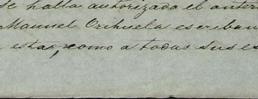 se halla autorizado el anter
Manuel Orihuela escriban
estas, como a todas sus es